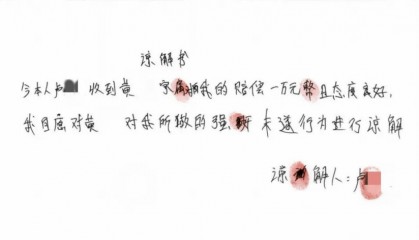 谅解书
今本人卢 收到黄 家属赔我的赔偿一万元整且态度良好,
我自愿对黄 对我所做的强奸未遂行为进行谅解
谅解人:卢